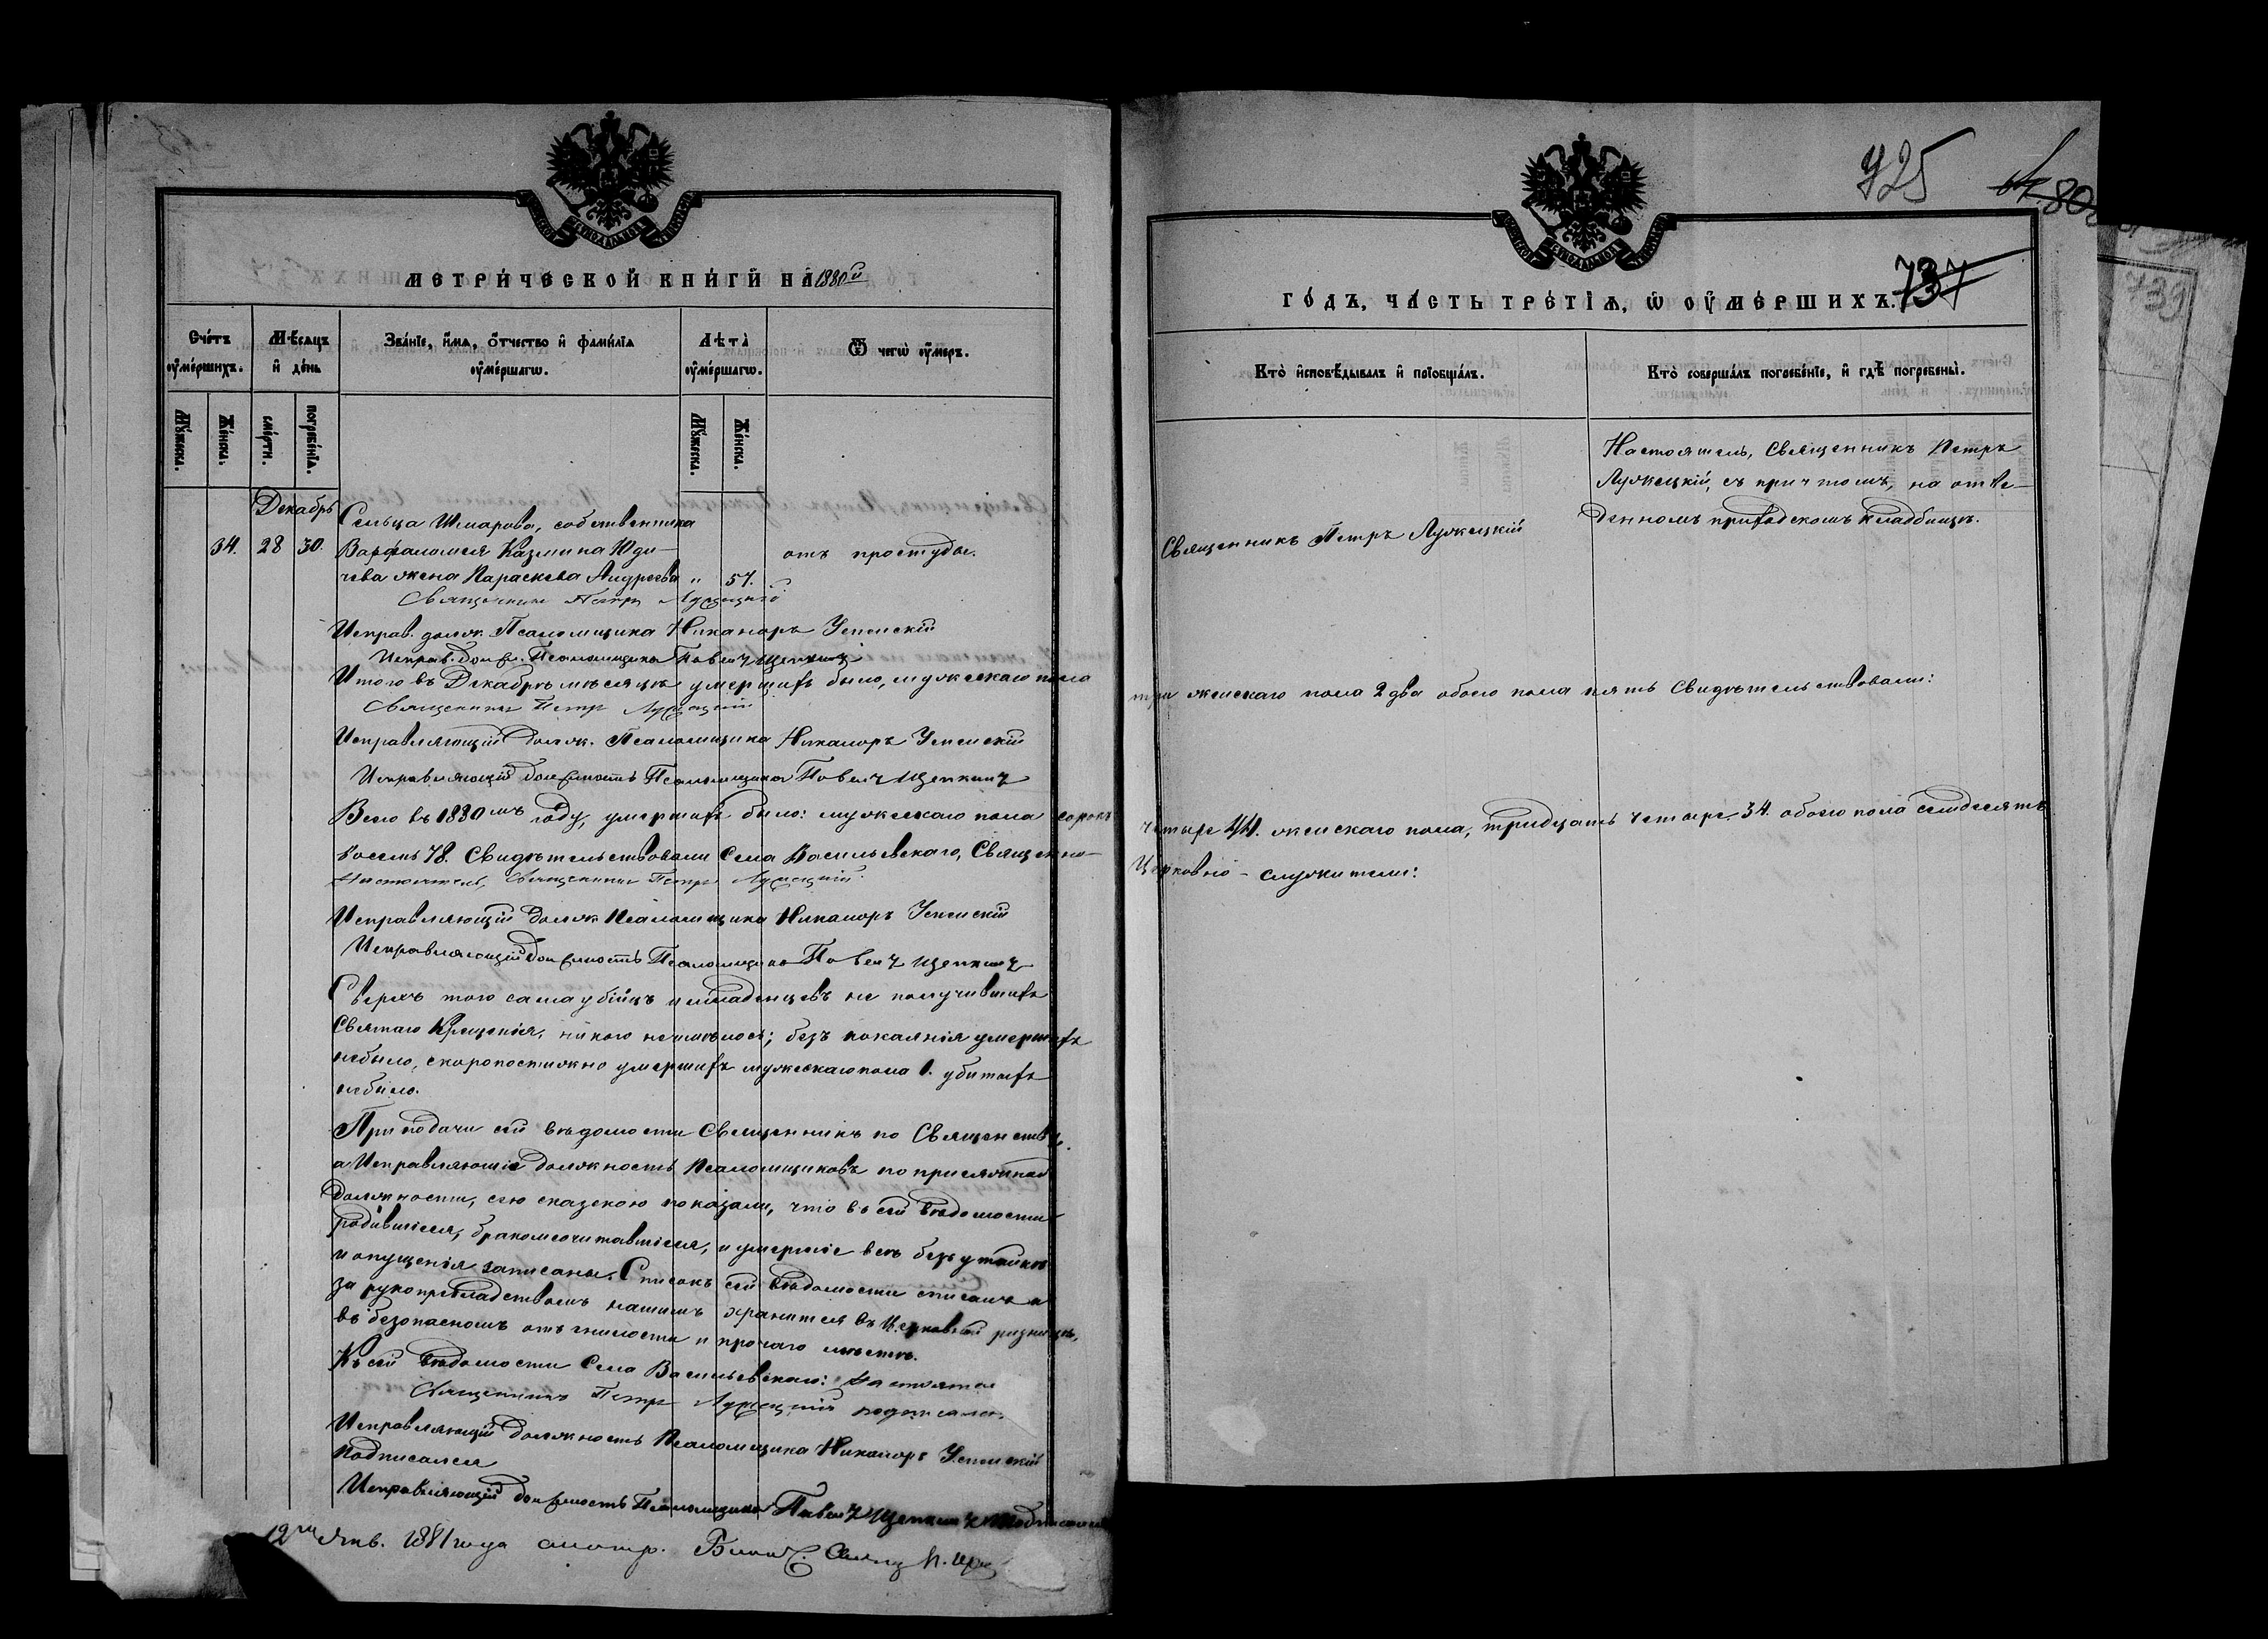 МЕТРИЧЕСКОЙ КНИГИ НА 1880й
Счетъ умершихъ.
Мѣсяцъ и день
Званіе, имя, отчество и фамилія умершаго.
Лѣта умершаго.
Ѿ чегѡ умеръ.
Мужеска.
Женска.
смерти.
погребенія.
Мужеска.
Женска.
Декабрь
Сельца Шмарова, собственника
34. 28 30. Варфаломея Казмина Юди- отъ простуды.
чева жена Параскева Андреева " 57.
Священникъ Петръ Лужецкій
Исправ. долж. Псаломщика Никаноръ Успенскій
Исправ. долж. Псаломщика Павелъ Щепкинъ
Итого въ Декабрѣ мѣсяцѣ умершихъ было, мужескаго пола
Священникъ Петръ Лужецкій
Исправляющій долж. Псаломщика Никаноръ Успенскій
Исправляющій должность Псаломщика Павелъ Щепкинъ
Всего въ 1880мъ году, умершихъ было: мужескаго пола сорокъ
восемь 78. Свидѣтельствовали Села Васильевскаго, Священно-
Настоятель, Священникъ Петръ Лужецкій.
Исправляющій долж Псаломщика Никаноръ Успенскій
Исправляющій должность Псаломщика Павелъ Щепкинъ
Сверхъ того самаубійцъ и младенцевъ не получившихъ
Святаго Крещенія, никого неимѣлось; безъ покаянія умершихъ
небыло, скоропостижно умершихъ мужескаго пола 1. убитыхъ
небыло.
При подачи сей вѣдомости Священникъ по Священству,
а Исправляющіе должность Псаломщиковъ по присяжной
должности, сею сказскою показали, что въ сей вѣдомости
родившіеся, бракомсочитавшіеся, и умершіе всѣ безъ утайки
и опущенія записаны. Списокъ сей вѣдомости списанъ и
за рукоприкладствомъ нашимъ хранится въ Церковной ризницѣ,
въ безопасномъ отъ гнилости и прочаго мѣстѣ.
Къ сей вѣдомости Села Васильевскаго: Настоятель
Священникъ Петръ Лужецкій подписался.
Исправляющій должность Псаломщика Никаноръ Успенскій
подписался
Исправляющій должность Псаломщика Павелъ Щепкинъ подписался
12го Янв. 1881 года смотр. Благ. Свящ
725
737
ГОДЪ, ЧАСТЬ ТРЕТІЯ, Ѡ УМЕРШИХЪ.
Кто исповѣдывалъ и пріобщалъ.
Кто совершалъ погребеніе, и гдѣ погребены.
Настоятель, Священникъ Петръ
Лужецкій, съ причтомъ, на отве-
Священникъ Петръ Лужецкій
денномъ приходскомъ кладбищѣ.
три женскаго пола 2 два обоего пола пять Свидѣтельствовали:
четыре 44. женскаго пола, тридцать четыре. 34. обоего пола семдесятъ
Церковно-служители:
739